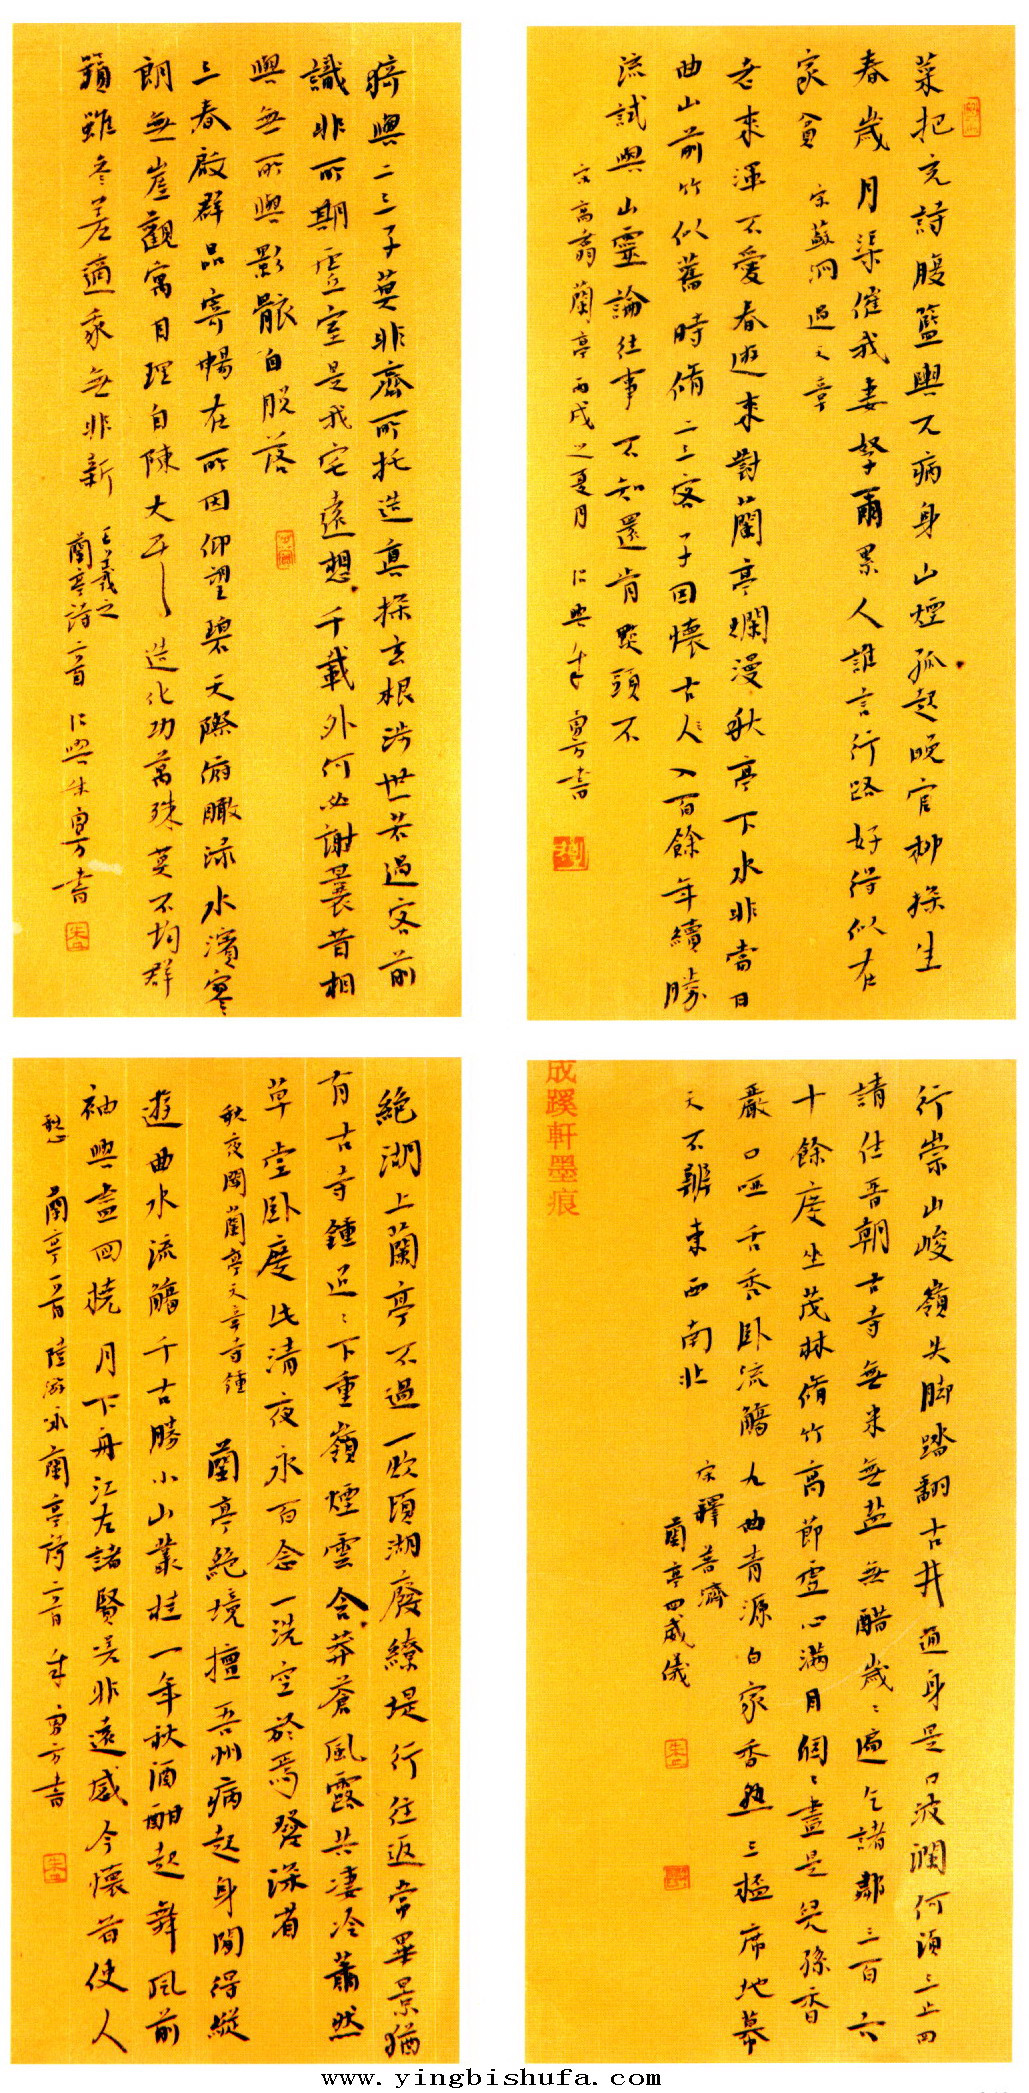 菜把充詩腹籃輿兀病身山煙孤起晚官柳探生
春歲月渠催我妻孥爾累人誰言行路好得似在
家貧
宋蘇泂過文章
老來渾不愛春遊來對蘭亭爛漫秋亭下水非當日
曲山前竹似舊時脩二三客子因懷古人入百餘年續勝
流試與山靈論往事不知還肯點頭不
宋高翥蘭亭丙戌之夏月仁興
書
猗與二三子莫非齊所托造真探玄根涉世若過客前
識非所期虛室是我宅遠想千載外何必謝曩昔相
與無所與影骸自脫落
三春啟群品寄暢在所因仰望碧天際俯瞰淥水濱寥
朗無崖觀寓目理自陳大矣造化功萬殊莫不均群
籟雖參差適我無非新
王羲之
蘭亭詩二首
仁興朱勇方書
行崇山峻嶺失腳踏翻古井通身是口波瀾何須三上四
請住晉朝古寺無米無鹽無醋歲歲遍乞諸鄰三百六
十餘度坐茂林脩竹高節虛心滿目個個盡是兒孫香
嚴口啞舌禿臥流觴九曲青源白家香熟三杯席地幕
天不辨東西南北
宋釋善濟
蘭亭四威儀
成蹊軒墨痕
絕湖上蘭亭不過一炊頃湖廢繚堤行往返常畢景猶
有古寺鍾迢迢下重嶺煙雲含莽蒼風露共淒冷蕭然
草堂臥度此清夜永百念一洗空於焉發深省
秋夜聞蘭亭天章寺鍾
蘭亭絕境擅吾州病起身閒得縱
遊曲水流觴千古勝小山叢桂一年秋酒酣起舞風前
袖興盡回橈月下舟江左諸賢吳非遠感今懷昔使人
愁
蘭亭一首陸游
蘭亭詩二首
勇方書
www.yingbishufa.com